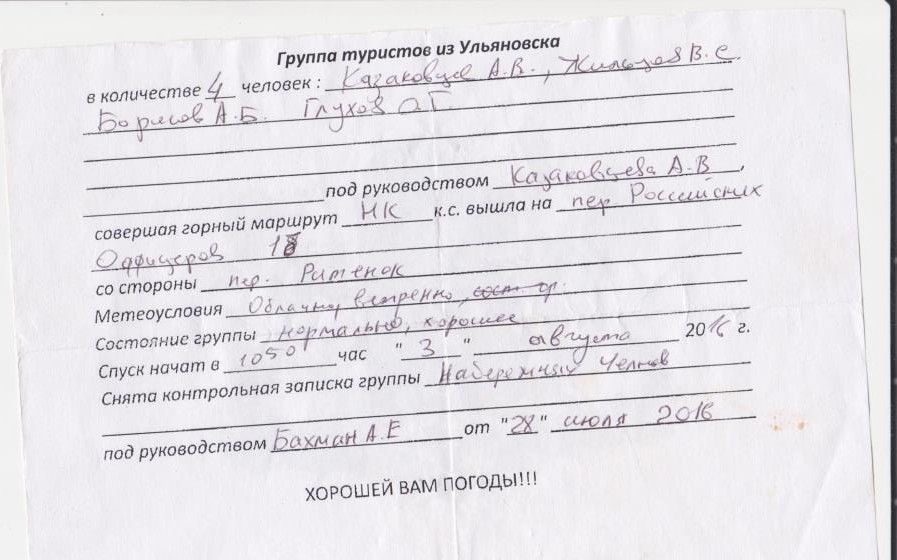 Группа туристов из Ульяновска
в количестве 4 человек : Казаковцев А.В., Жильцов В.С.
Борисов А.Б. Глухов О.Г.
под руководством Казаковцева А.В,
совершая горный маршрут НК к.с. вышла на пер. Российских
Оффицеров 1Б
со стороны пер. Ритенок
Метеоусловия Облачно, ветренно, сост. гр.
Состояние группы нормально, хорошее
Спуск начат в 10⁵⁰ час "3" августа 2016 г.
Снята контрольная записка группы Набережных Челнов
под руководством Бахман А.Е от "28" июля 2016
ХОРОШЕЙ ВАМ ПОГОДЫ!!!